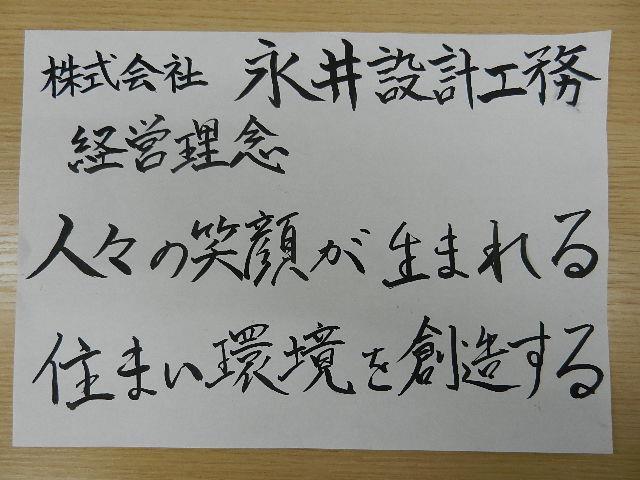 株式会社 永井設計工務
経営理念
人々の笑顔が生まれる
住まい環境を創造する